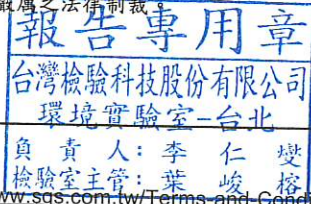 嚴厲之法律制裁。
報告專用章
台灣檢驗科技股份有限公司
環境實驗室-台北
負責人:李仁燮
檢驗室主管:葉峻榕
www.sgs.com.tw/Terms-and-Condi